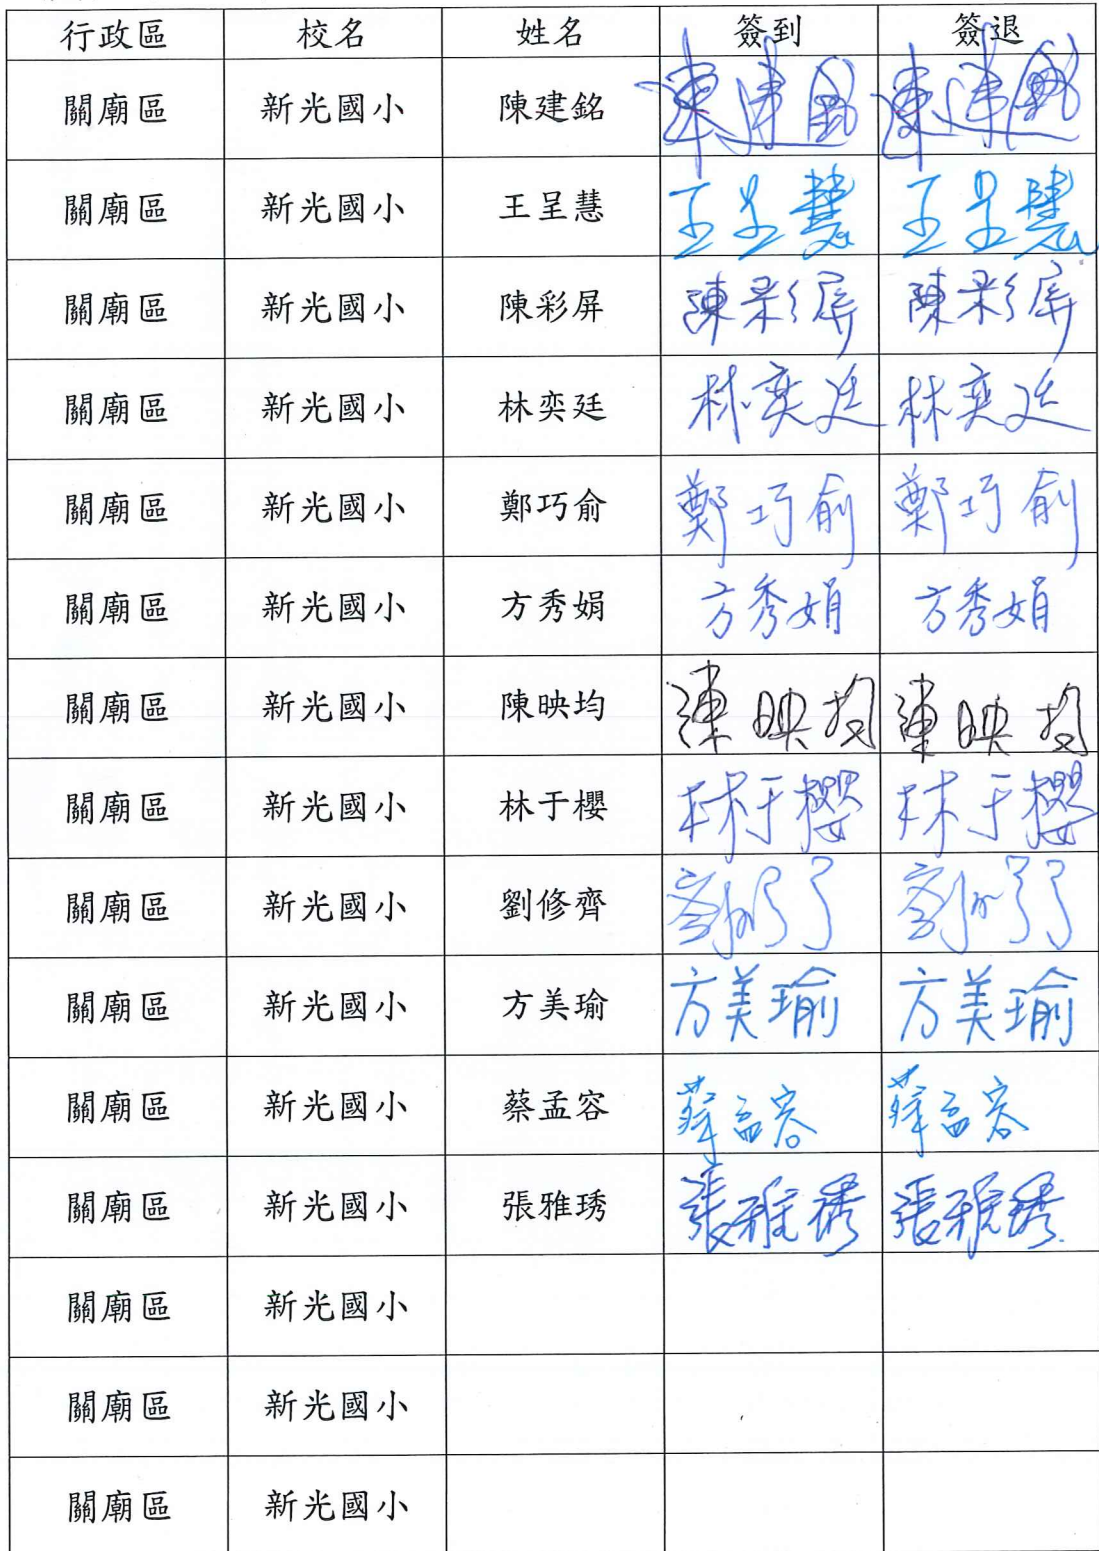 行政區 校名 姓名 簽到 簽退
關廟區 新光國小 陳建銘 陳建銘 陳建銘
關廟區 新光國小 王呈慧 王呈慧 王呈慧
關廟區 新光國小 陳彩屏 陳彩屏 陳彩屏
關廟區 新光國小 林奕廷 林奕廷 林奕廷
關廟區 新光國小 鄭巧俞 鄭巧俞 鄭巧俞
關廟區 新光國小 方秀娟 方秀娟 方秀娟
關廟區 新光國小 陳映均 陳映均 陳映均
關廟區 新光國小 林于櫻 林于櫻 林于櫻
關廟區 新光國小 劉修齊
關廟區 新光國小 方美瑜 方美瑜 方美瑜
關廟區 新光國小 蔡孟容 蔡孟容 蔡孟容
關廟區 新光國小 張雅琇 張雅琇 張雅琇
關廟區 新光國小
關廟區 新光國小
關廟區 新光國小